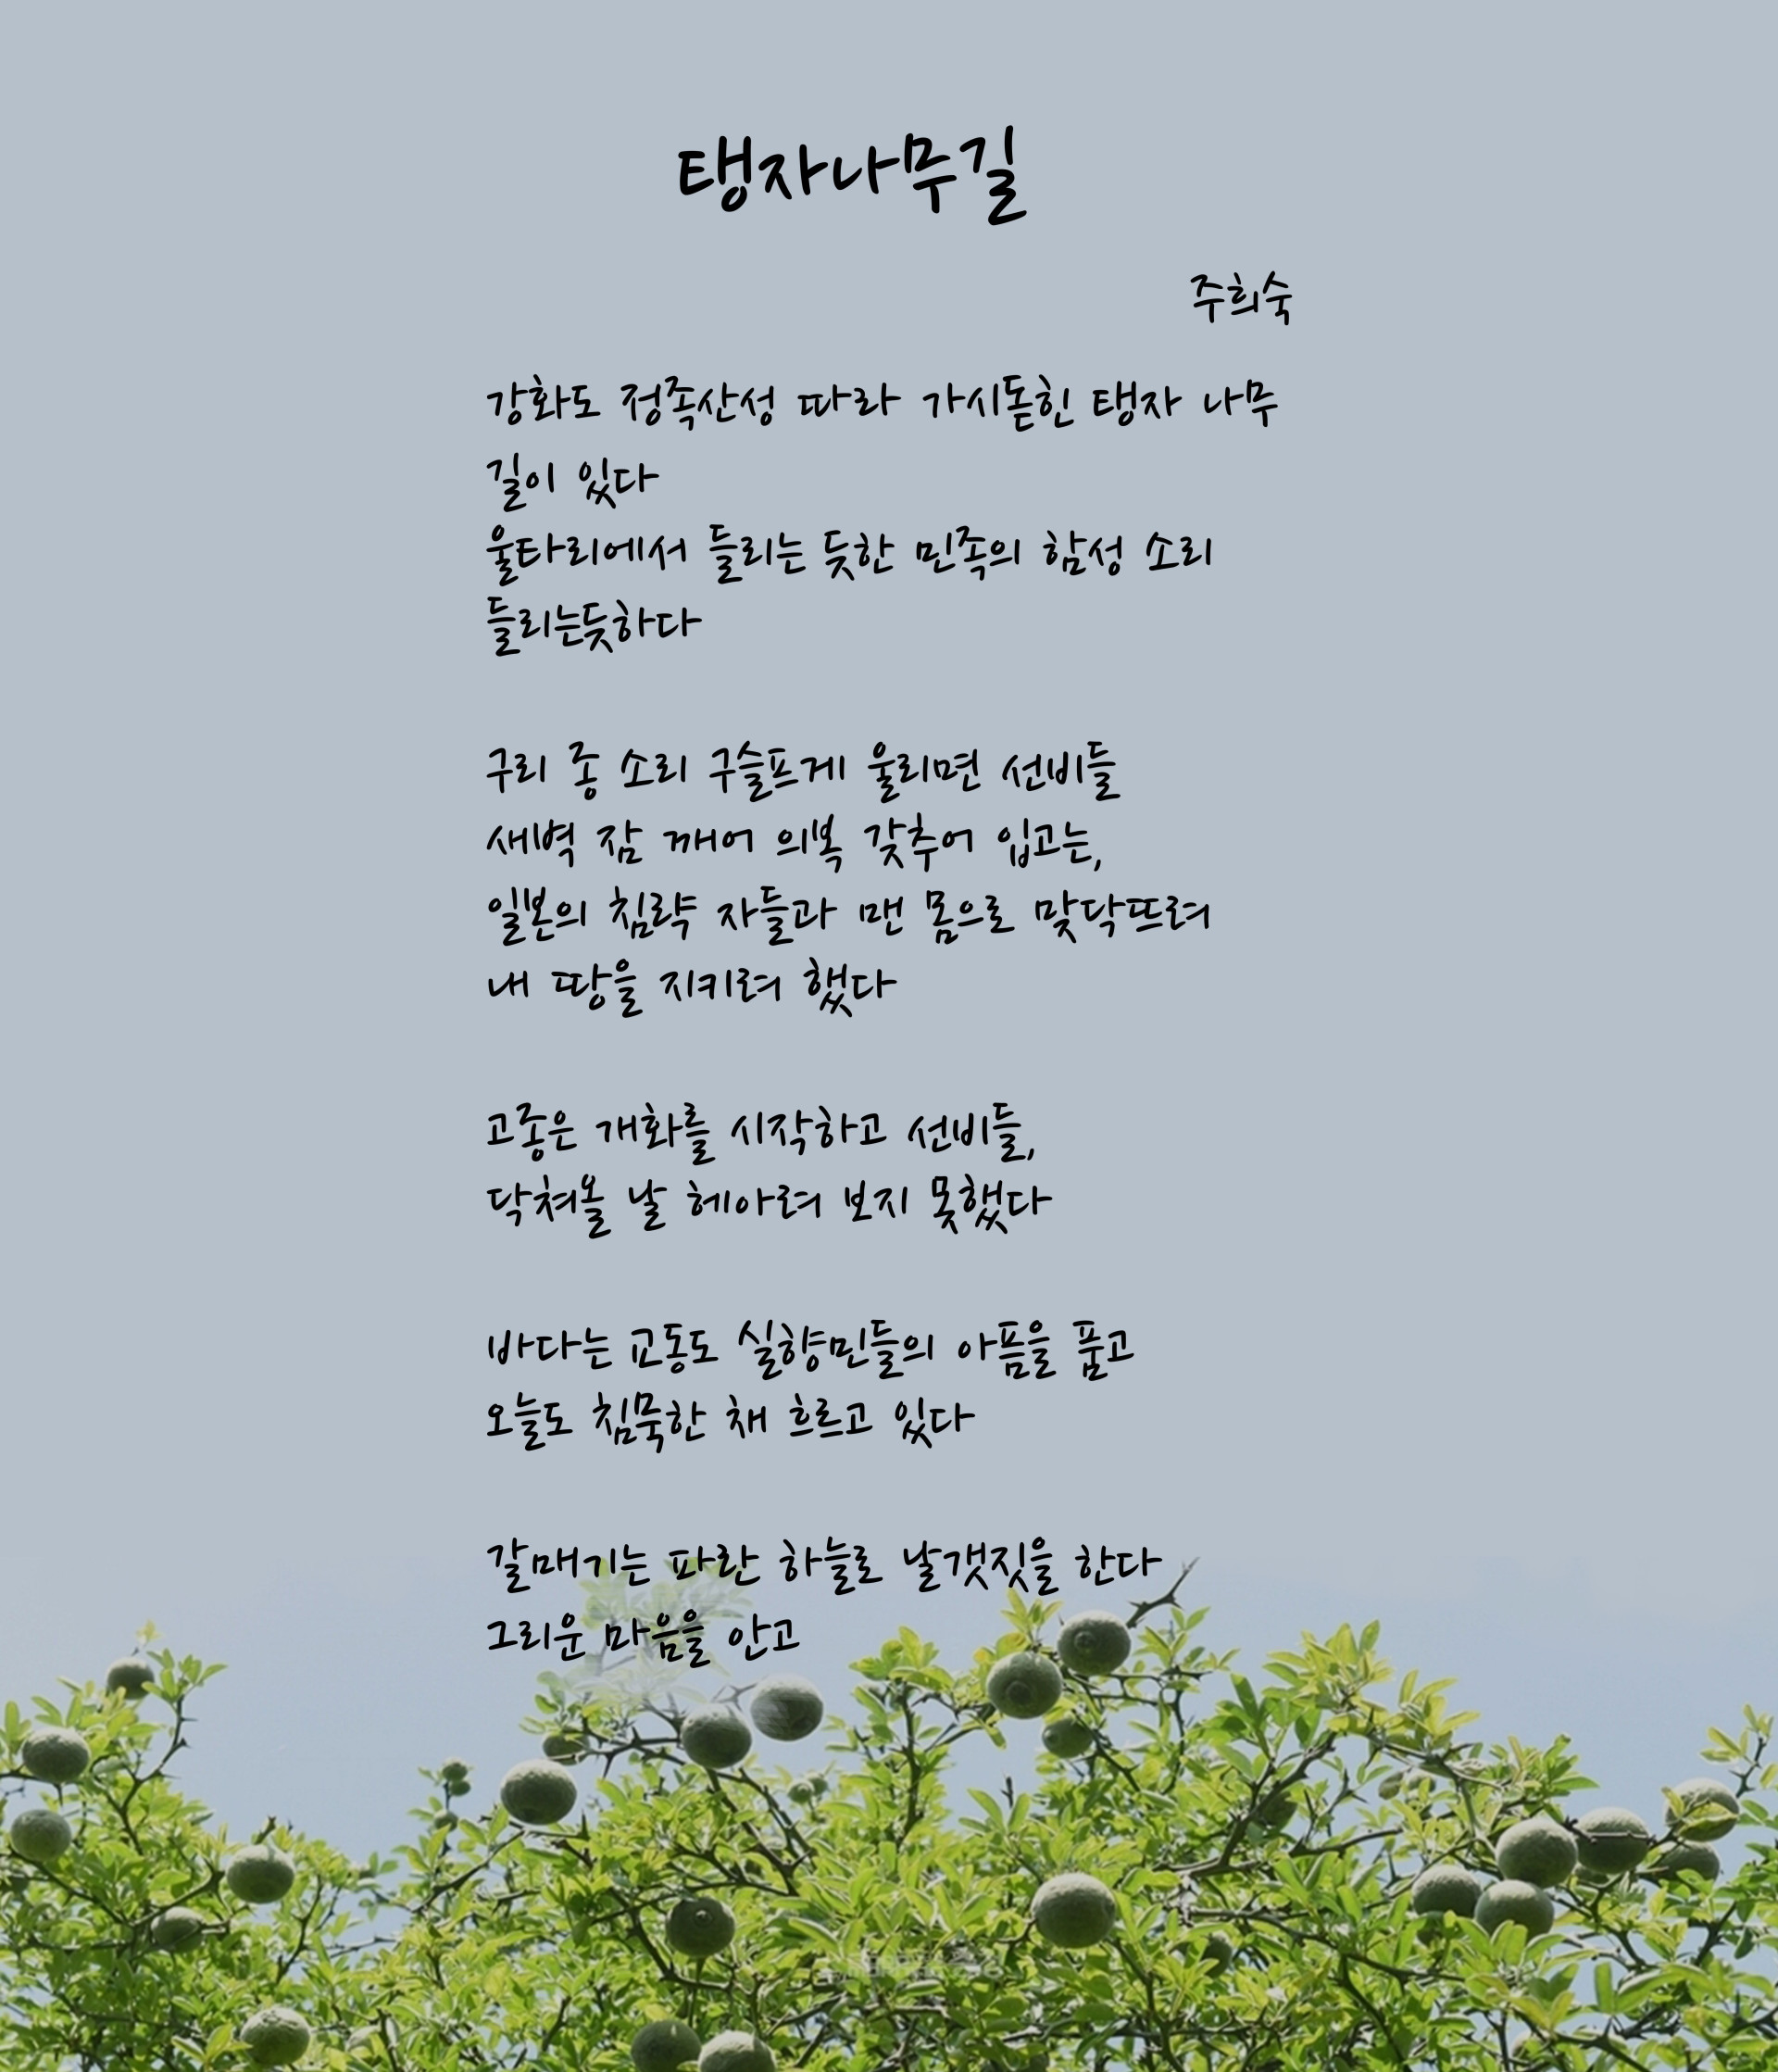 탱자나무길
주희숙
강화도 정족산성 따라 가시돋힌 탱자 나무
길이 있다
울타리에서 들리는 듯한 민족의 함성 소리
들리는듯하다
구리 종 소리 구슬프게 울리면 선비들
새벽 잠 깨어 의복 갖추어 입고는,
일본의 침략 자들과 맨 몸으로 맞닥뜨려
내 땅을 지키려 했다
고종은 개화를 시작하고 선비들,
닥쳐올 날 헤아려 보지 못했다
바다는 교동도 실향민들의 아픔을 품고
오늘도 침묵한 채 흐르고 있다
갈매기는 파란 하늘로 날갯짓을 한다
그리운 마음을 안고